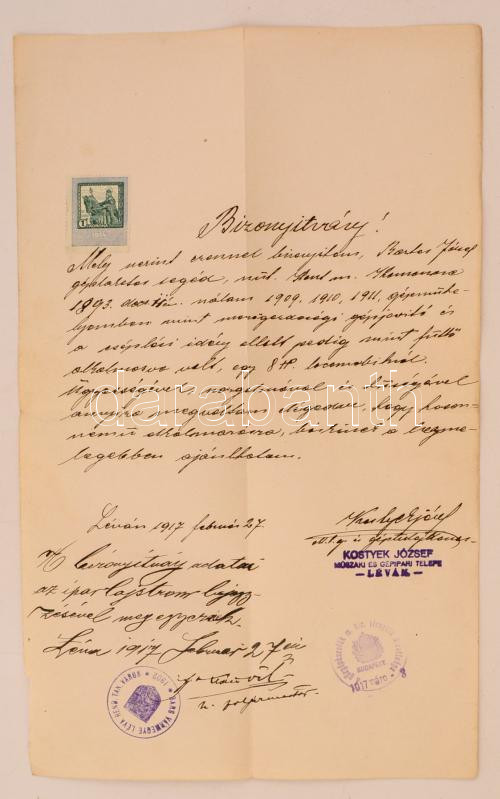 Bizonyitvány!
Mely szerint ezennel bizonyitom, Bartos József
géplakatos segéd, szül.
1893. nálam 1909, 1910, 1911, gépműhe-
lyemben mint mezőgazdasági gépjavitó és
a cséplési idény alatt pedig mint fűtő
alkalmazva volt, egy 8 HP. locomobilnál.
Ügyességével, szorgalmával és hűségével
annyira meg voltam elégedve, hogy hason-
nemű alkalmazásra, bárkinek a legme-
legebben ajánlhatom.
darabanth
Léván 1917 februar 27.
Kostyek József
KOSTYEK JÓZSEF
MŰSZAKI ÉS GÉPIPARI TELEPE
— LÉVÁN —
A bizonyitvány adatai
az iparlajstrom bejegy-
zésével megegyezik.
Léva 1917 Februar 27én
h. polgármester
BARS VÁRMEGYE LÉVA REND. TAN. VÁROS * 1902 *
BUDAPEST
1917